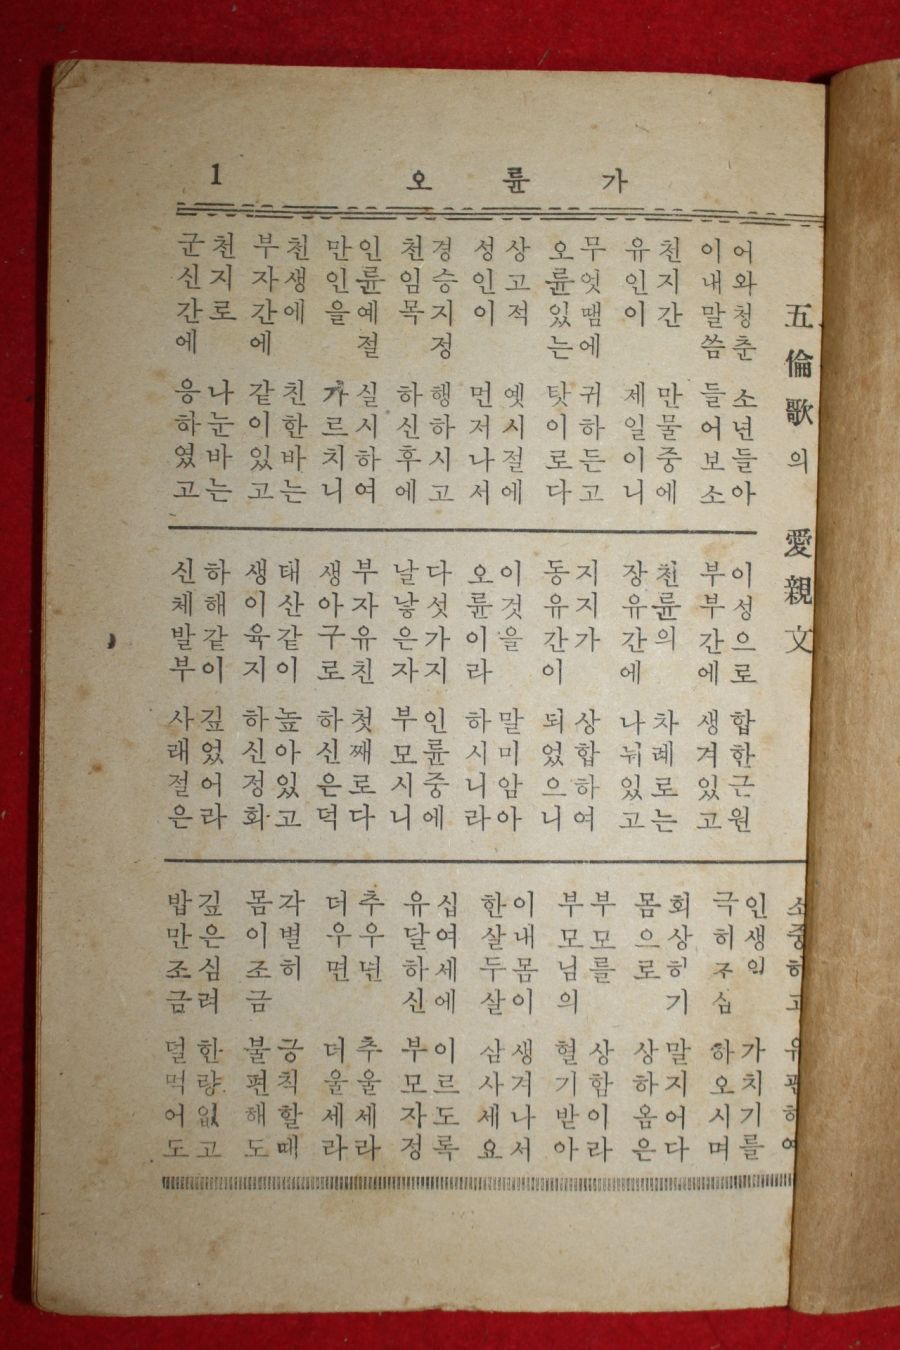 1 오륜가
五倫歌의 愛親文
어와청춘 소년들아
이내말씀 들어보소
천지간 만물중에
유인이 제일이니
무엇땜에 귀하든고
오륜있는 탓이로다
상고적 옛시절에
성인이 먼저나서
경승지정 행하시고
천임목 하신후에
인륜예절 실시하여
만인을 가르치니
천생에 친한바는
부자간에 같이있고
천지로 나눈바는
군신간에 응하였고
이성으로 합한근원
부부간에 생겨있고
천륜의 차례로는
장유간에 나뉘있고
지지가 상합하여
동유간이 되었으니
이것을 말미암아
오륜이라 하시니라
다섯가지 인륜중에
날낳은자 부모시니
부자유친 첫째로다
생아구로 하신은덕
태산같이 높아있고
생이육지 하신정회
하해같이 깊었어라
신체발부 사래절은
소중하고
인생의 가치기를
극히조심 하오시며
회상하기 말지어다
몸으로 상하옴은
부모를 상함이라
부모님의 혈기받아
이내몸이 생겨나서
한살두살 삼사세요
십여세에 이르도록
유달하신 부모자정
추우면 추울세라
더우면 더울세라
각별히 긍칙할때
몸이조금 불편해도
깊은심려 한량없고
밥만조금 덜먹어도